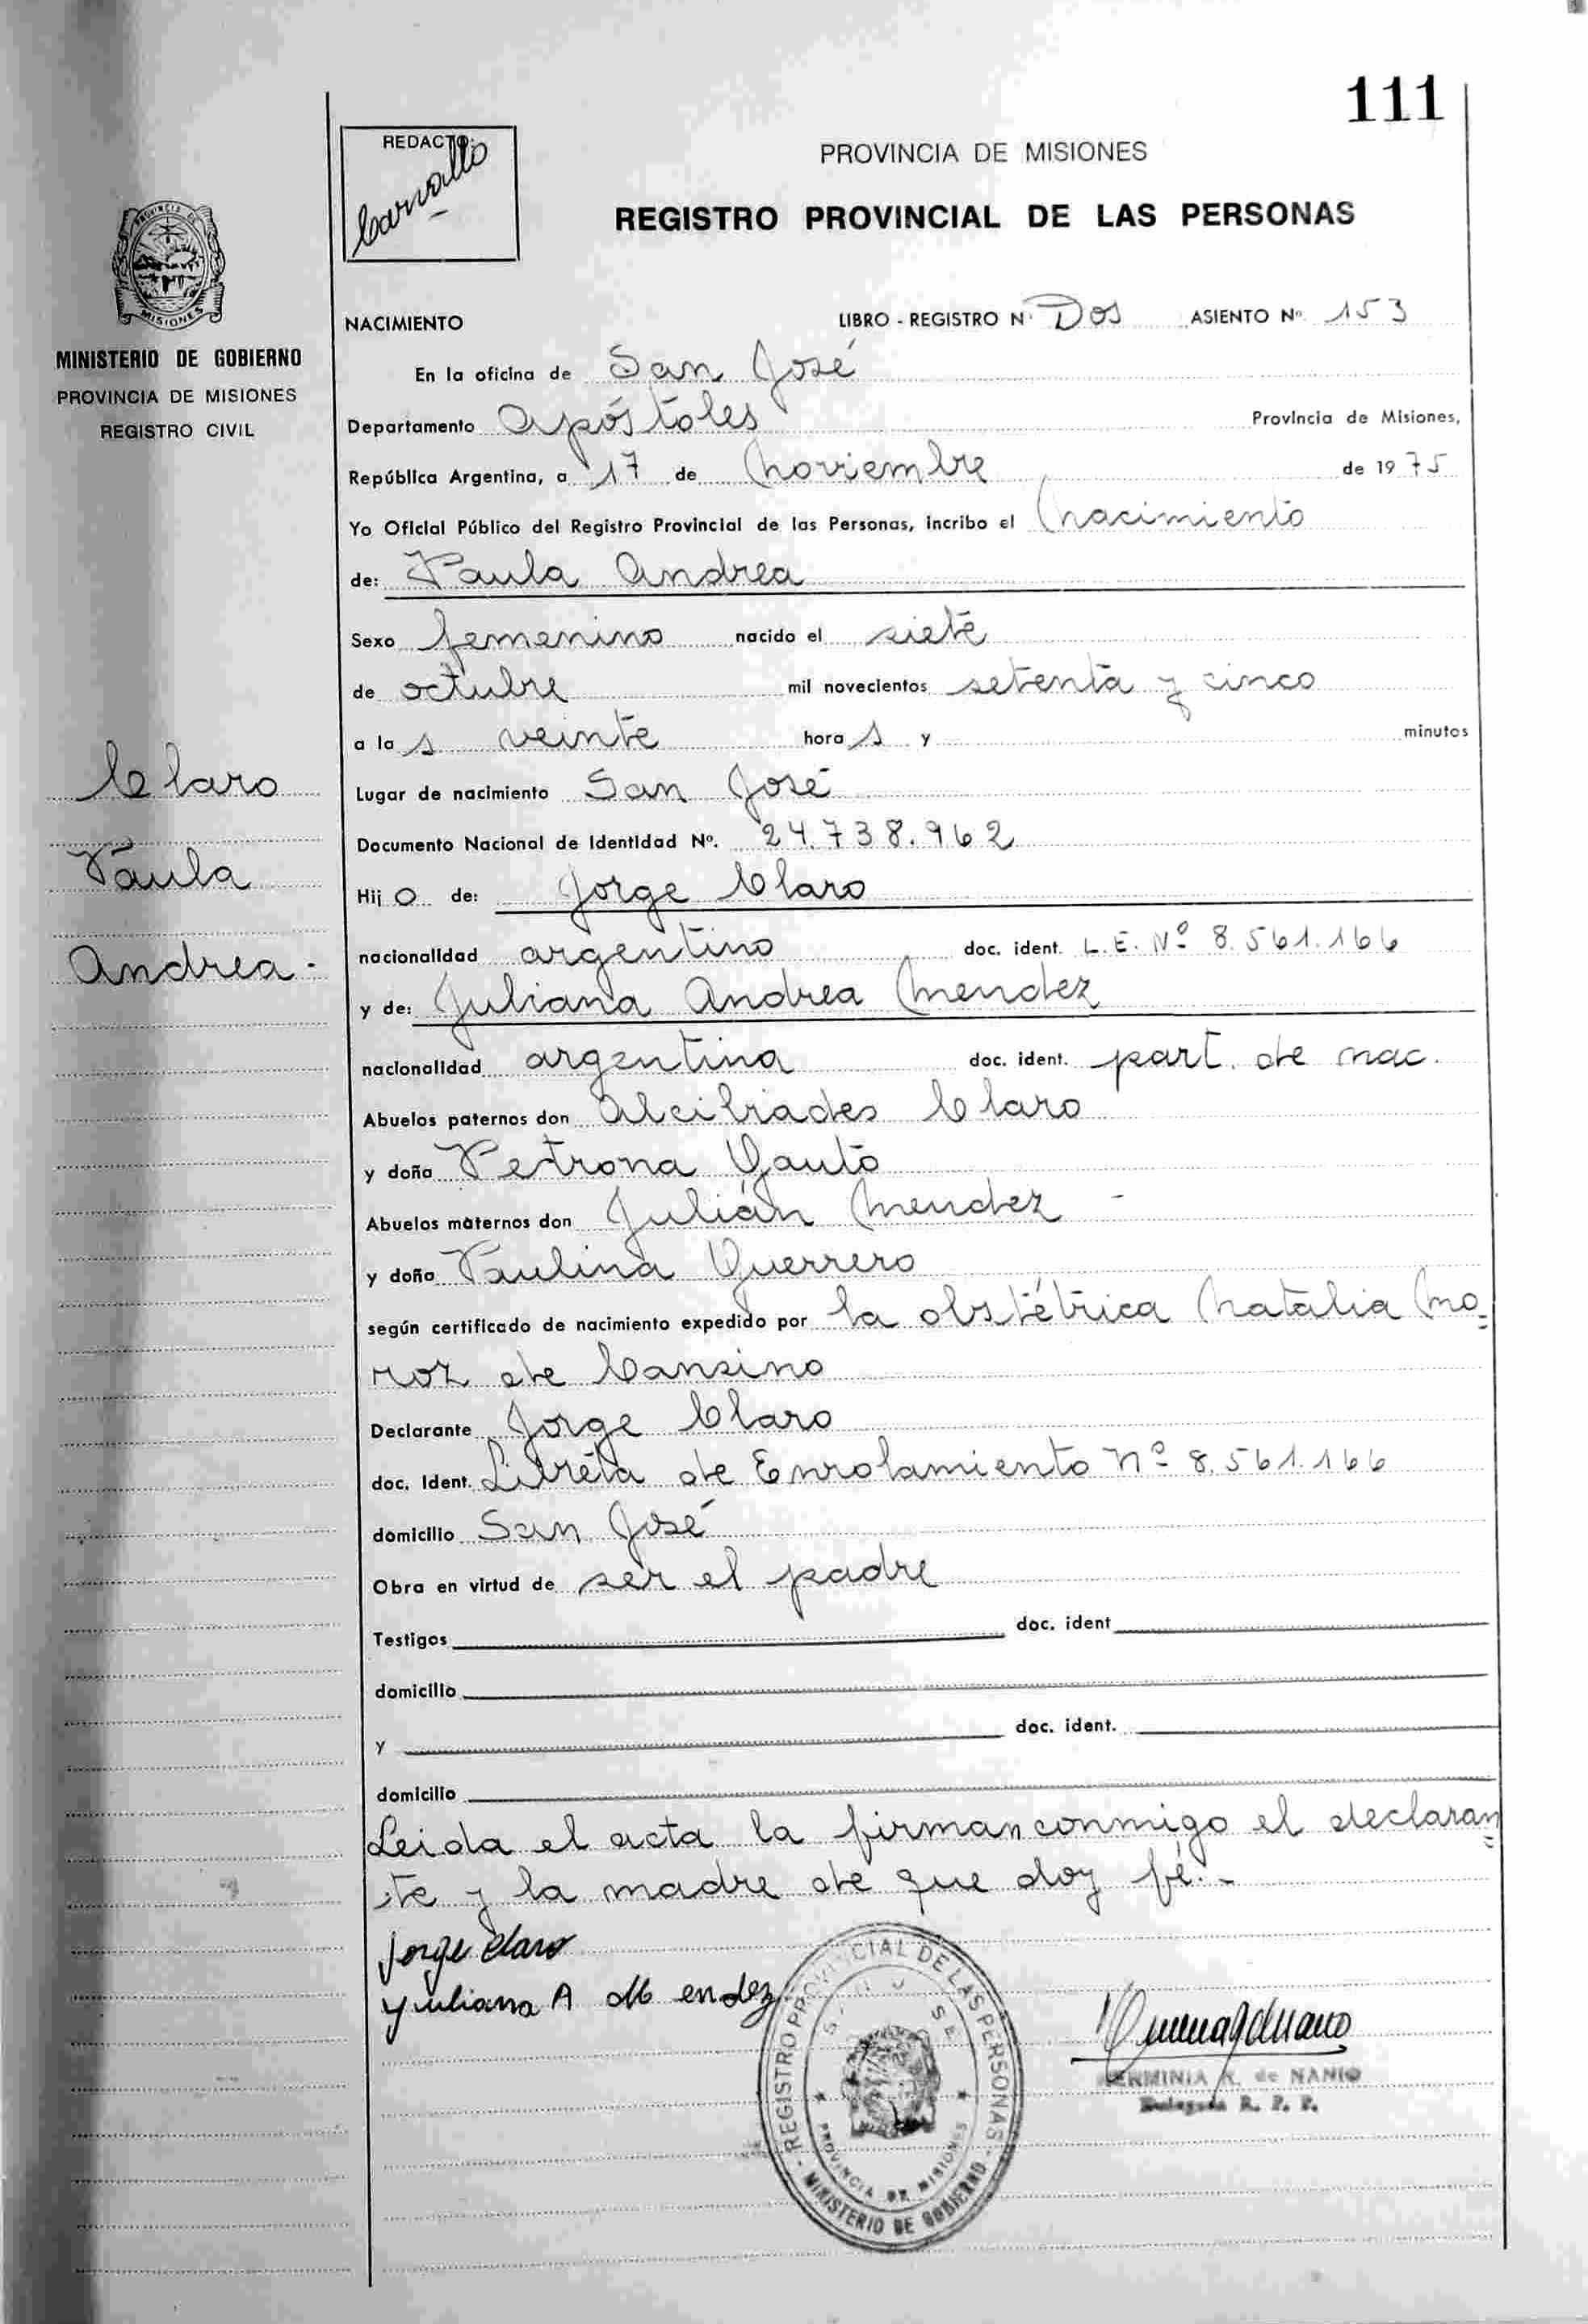 111
REDACTO:
Carvallo
PROVINCIA DE MISIONES
REGISTRO PROVINCIAL DE LAS PERSONAS
MISIONES
MINISTERIO DE GOBIERNO
PROVINCIA DE MISIONES
REGISTRO CIVIL
Claro
Paula
Andrea.-
NACIMIENTO LIBRO - REGISTRO Nº Dos ASIENTO Nº 153
En la oficina de San José
Departamento Apóstoles Provincia de Misiones,
República Argentina, a 17 de Noviembre de 1975
Yo Oficial Público del Registro Provincial de las Personas, incribo el Nacimiento
de: Paula Andrea
Sexo femenino nacido el siete
de octubre mil novecientos setenta y cinco
a las veinte horas y minutos
Lugar de nacimiento San José
Documento Nacional de Identidad Nº. 24.738.962
Hijo de: Jorge Claro
nacionalidad argentino doc. ident. L.E. Nº 8.561.166
y de: Juliana Andrea Mendez
nacionalidad argentina doc. ident. part. de nac.
Abuelos paternos don Alcibiades Claro
y doña Petrona Gauto
Abuelos maternos don Julián Mendez -
y doña Paulina Guerrero
según certificado de nacimiento expedido por la obstétrica Natalia Mo=
roz de Cansino
Declarante Jorge Claro
doc. Ident. Libreta de Enrolamiento Nº 8.561.166
domicilio San José
Obra en virtud de ser el padre
Testigos doc. ident
domicilio
y doc. ident.
domicilio
Leida el acta la firman conmigo el declaran=
te y la madre de que doy fé.-
Jorge Claro
Yuliana A Mendez
REGISTRO PROVINCIAL DE LAS PERSONAS - MINISTERIO DE GOBIERNO -
SAN JOSE
PROVINCIA DE MISIONES
HERMINIA R. de NANIO
Delegada R. P. P.